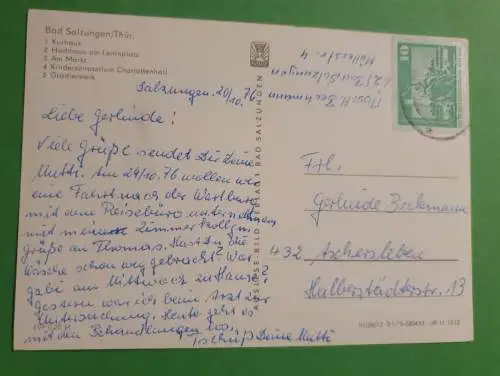 Bad Salzungen/Thür.
1 Kurhaus
2 Hochhaus am Leninplatz
3 Am Markt
4 Kindersanatorium Charlottenhall
5 Gradierwerk
Salzungen, 20/10.76
Liebe Gerlinde!
Viele Grüße sendet Dir Deine
Mutti. Am 24/10.76 wollen wir
eine Fahrt nach der Wartburg
mit dem Reisebüro unternehmen
mit meinen Zimmerkolleginnen
grüße an Thomas. Hast Du die
Wäsche schon weg gebracht? War
Gabi am Mittwoch zu Hause?
Gestern war ich beim Arzt zur
Untersuchung. Heute geht es
mit den Behandlungen los.
Tschüß Deine Mutti
AUSLESE-BILD-VERLAG BAD SALZUNGEN
Abs. H. Beckmann
(62) Bad Salzungen
4
10
Frl.
Gerlinde Beckmann
432 Aschersleben
Halberstädterstr. 13